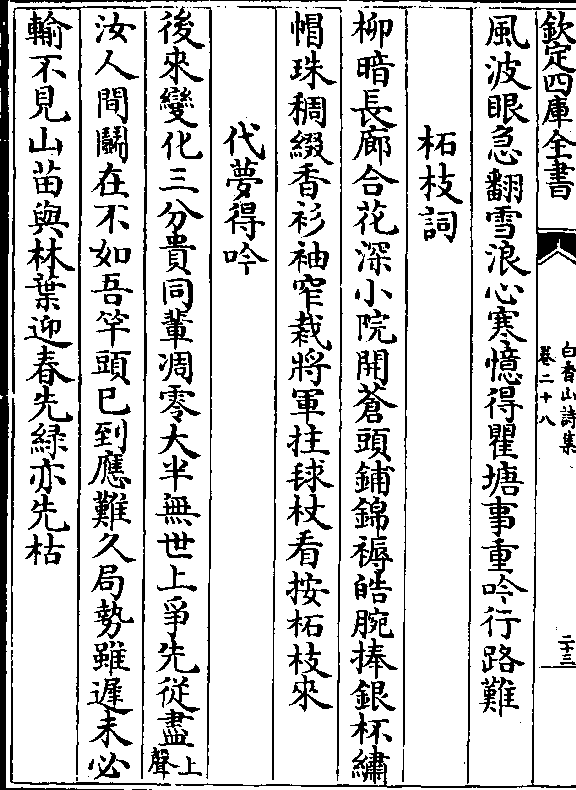 欽定四庫全書
白香山詩集
卷二十八
二十三
風波眼急翻雪浪心寒憶得瞿塘事重吟行路難
柘枝詞
柳暗長廊合花深小院開蒼頭鋪錦褥皓腕捧銀杯繡
帽珠稠綴香衫袖窄裁將軍拄毬杖看按柘枝來
代夢得吟
後來變化三分貴同輩凋零大半無世上爭先從盡上聲
汝人間鬭在不如吾竿頭已到應難久局勢雖遲未必
輸不見山苗與林葉迎春先緑亦先枯